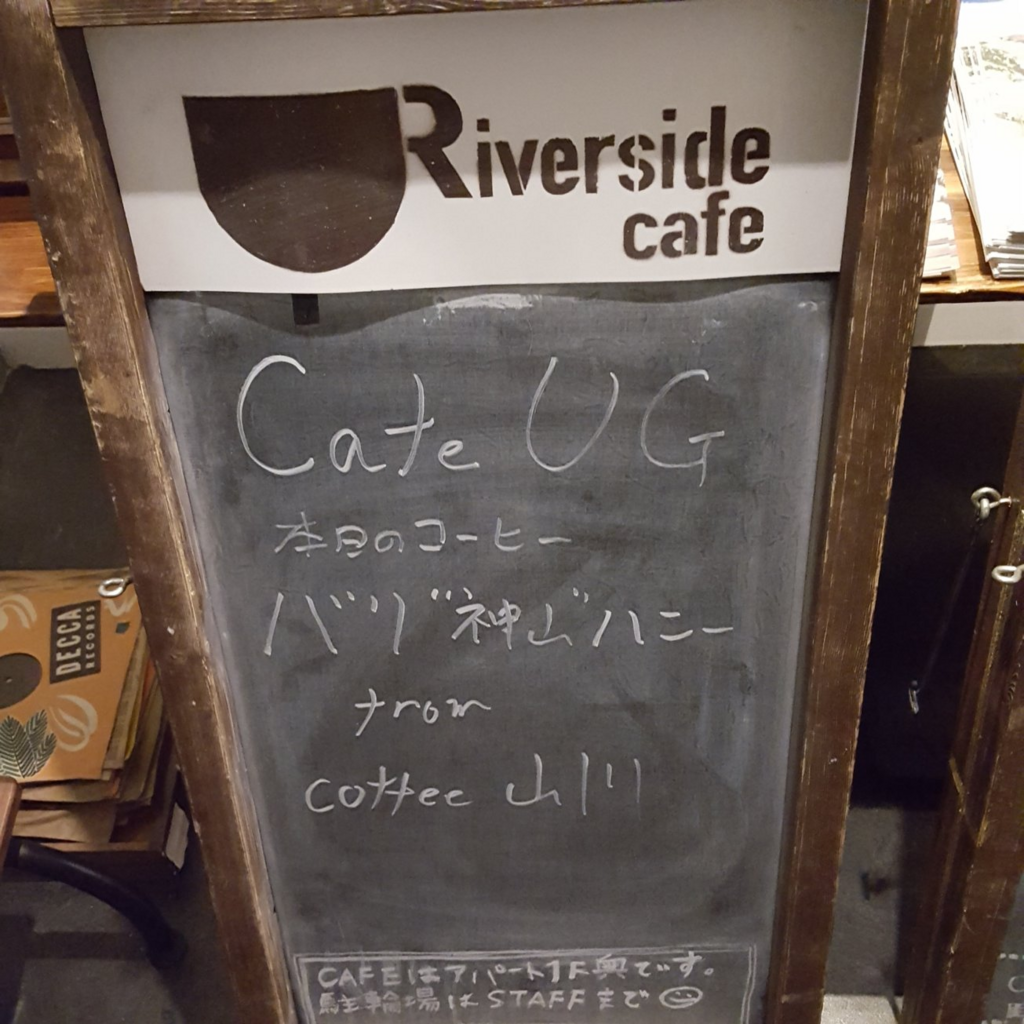 Riverside
cafe
Cafe UG
本日のコーヒー
バリ"神山"ハニー
from
coffee 山川
CAFEはアパート1F奥です。
駐輪場はSTAFFまで
DECCA
RECORDS